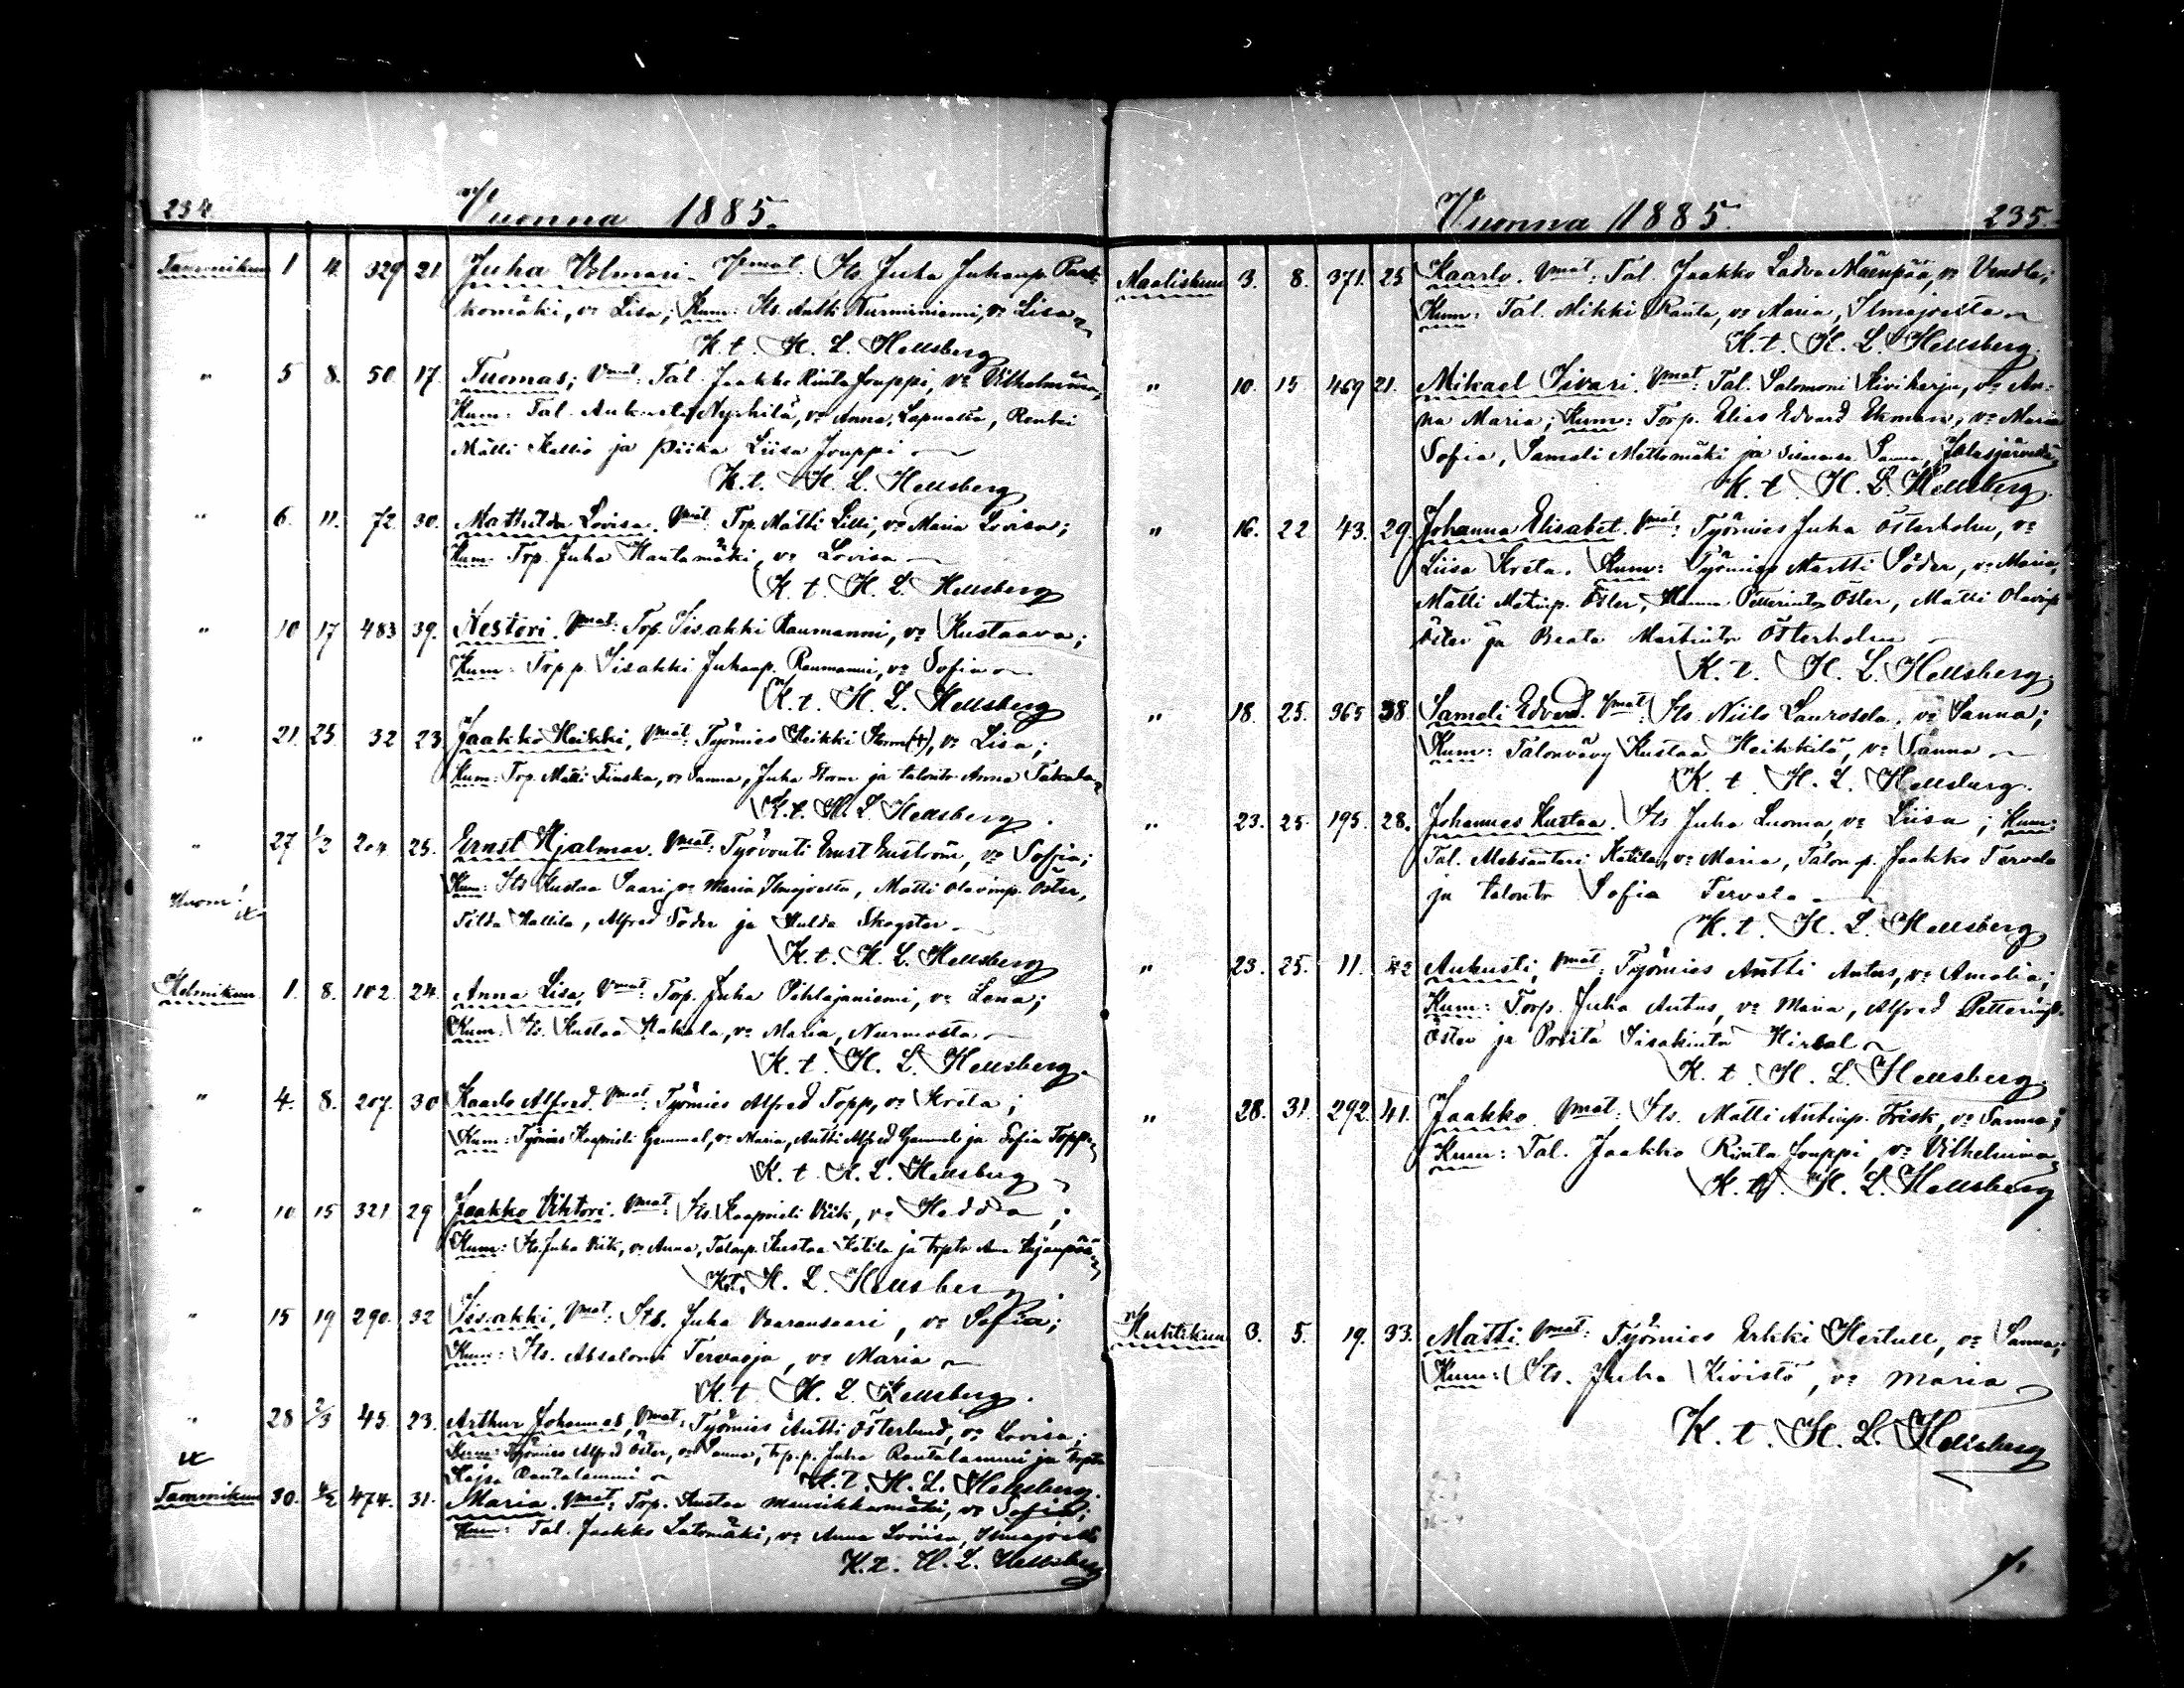 234. Vuonna 1885.
Tammikuu 1 4. 329 21. Juha Volmari. Vmat: Its. Juha Juhanp. Park-
komäki, vo Lisa; Kum: Its. Antti Nurminiemi, vo Lisa
K. t. H. L. Hellsberg
" 5 8. 50. 17. Tuomas; Vmat: Tal. Jaakko Rinta Jouppi, vo Vilhelmiina,
Kum: Tal. Aukusti Nyrhilä, vo Anna, Lapualta, Renki
Matti Kallio ja Piika Liisa Jouppi
K. t. H. L. Hellsberg
" 6. 11. 72. 30. Mathilda Lovisa. Vmat: Trp. Matti Lilli, vo Maria Lovisa;
Kum: Trp. Juha Hautamäki, vo Lovisa
K. t. H. L. Hellsberg
" 10 17 483 39. Nestori. Vmat: Trp. Iisakki Raumanni, vo Kustaava;
Kum: Trp.p. Iisakki Juhanp. Raumanni, vo Sofia
K. t. H. L. Hellsberg
" 21. 25. 32 23 Jaakko Heikki, Vmat: Työmies Heikki Storm (+), vo Lisa;
Kum: Trp. Matti Finska, vo Sanna, Juha Storm ja talontr Anna Takala
K. t. H. L. Hellsberg.
" 27 1/2 204 25. Ernst Hjalmar. Vmat: Työvouti Ernst Enström, vo Sofia;
Kum: Its Kustaa Saari, vo Maria Ilmajoelta, Matti Olavinp. Öster,
Huom!
Tilda Kallila, Alfred Söder ja Hulda Skogster
K. t. H. L. Hellsberg
Helmikuu 1. 8. 102. 24. Anna Lisa, Vmat: Torp. Juha Pihlajaniemi, vo Lena;
Kum: Its. Kustaa Hakala, vo Maria, Nurmosta
K. t. H. L. Hellsberg.
" 4. 8. 207. 30 Kaarlo Alfred. Vmat: Työmies Alfred Topp, vo Kreta;
Kum: Työmies Kaaprieli Gammal, vo Maria, Antti Alfred Gammal ja Sofia Topp
K. t. H. L. Hellsberg
" 10 15 321 29 Jaakko Viktori. Vmat: Its. Kaaprieli Viik, vo Hedda;
Kum: Its. Juha Viik, vo Anna, Talonp. Kustaa Kotila ja trptr Anna
K. t. H. L. Hellsberg
" 15 19 290. 32 Iisakki, Vmat: Its. Juha Vaaransaari, vo Sofia;
Kum: Its. Absalomi Tervasja, vo Maria
K. t. H. L. Hellsberg.
" 28 2/3 45. 23. Arthur Johannes, Vmat: Työmies Antti Österlund, vo Lovisa;
Kum: Työmies Alfred Öster, vo Sanna, trp.p. Juha Rautalammi ja trptr
Kajsa Rautalammi
K. t. H. L. Hellsberg.
Tammikuu 30. 4/2 474. 31. Maria. Vmat: Trp. Kustaa Mansikkamäki, vo Sofia;
Kum: Tal. Jaakko Latomäki, vo Anna Loviisa, Ilmajoelta
K. t. H. L. Hellsberg
Vuonna 1885. 235.
Maaliskuu 3. 8. 371. 25 Kaarlo. Vmat: Tal. Jaakko Ladva Mäenpää, vo Vendla;
Kum: Tal. Mikki Rauta, vo Maria, Ilmajoelta
K. t. H. L. Hellsberg.
" 10. 15. 469 21. Mikael Iivari. Vmat: Tal. Salomoni Kiviharju, vo An-
na Maria; Kum: Torp. Elias Edvard Ekman, vo Maria
Sofia, Sameli Mettomäki ja sisarensa Sanna, Jalasjärveltä
K. t. H. L. Hellsberg.
" 16. 22 43. 29. Johanna Elisabet. Vmat: Työmies Juha Österholm, vo
Liisa Kreta. Kum: Työmies Martti Söder, vo Maria,
Matti Matinp. Öster, Hanna Petterintr Öster, Matti Olavinp
Öster ja Beata Martintr Österholm
K. t. H. L. Hellsberg.
" 18. 25. 365 38 Sameli Edvard. Vmat: Its. Niilo Laurosela, vo Sanna;
Kum: Talonvävy Kustaa Heikkilä, vo Sanna
K. t. H. L. Hellsberg.
" 23. 25. 195. 28. Johannes Kustaa. Its Juha Luoma, vo Liisa; Kum:
Tal. Aleksanteri Kotila, vo Maria, Talonp. Jaakko Tervala
ja talontr Sofia Tervala
K. t. H. L. Hellsberg
" 23. 25. 11. 42 Aukusti, Vmat: Työmies Antti Antus, vo Amalia;
Kum: Torp. Juha Antus, vo Maria, Alfred Petterinp.
Öster ja Priita Iisakintr
K. t. H. L. Hellsberg.
" 28. 31. 292. 41. Jaakko. Vmat: Its. Matti Antinp. Frisk, vo Sanna;
Kum: Tal. Jaakko Rinta Jouppi, vo Vilhelmina
K. t. H. L. Hellsberg
Huhtikuu 3. 5. 19. 33. Matti. Vmat: Työmies Erkki Hertull, vo Sanna;
Kum: Its. Juha Kivistö, vo Maria
K. t. H. L. Hellsberg